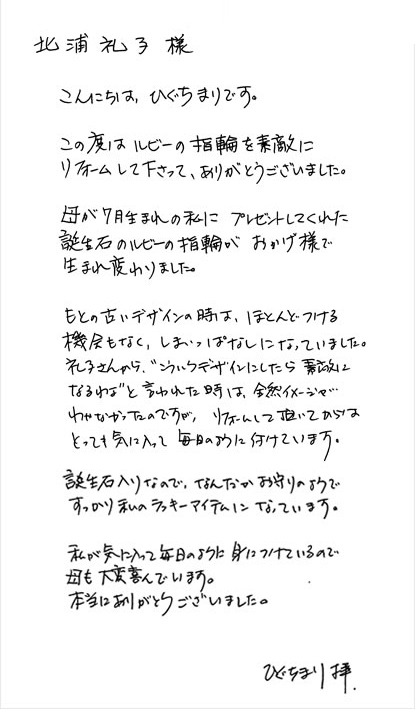 北浦礼子様
こんにちは、ひぐちまりです。
この度はルビーの指輪を素敵に
リフォームして下さって、ありがとうございました。
母が7月生まれの私に プレゼントしてくれた
誕生石のルビーの指輪が おかげ様で
生まれ変わりました。
もとの古いデザインの時は、ほとんどつける
機会もなく、しまいっぱなしになっていました。
礼子さんから、"こういうデザインにしたら 素敵に
なるわね"と言われた時は、全然イメージが
わかなかったのですが、リフォームして頂いてからは
とっても気に入って 毎日のように付けています。
誕生石入りなので、なんだかお守りのようで
すっかり私のラッキーアイテムになっています。
私が気に入って毎日のように身につけているので
母も大変喜んでいます。
本当にありがとうございました。
ひぐちまり拝.